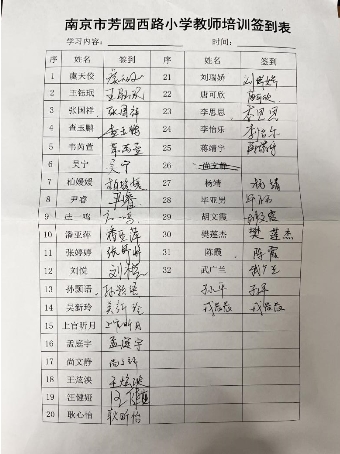 南京市芳园西路小学教师培训签到表
学习内容： 时间：
序 姓名 签到 序 姓名 签到
1 虞天俊 虞天俊 21 刘瑞娇 刘瑞娇
2 王钰珉 王钰珉 22 唐可欣 唐可欣
3 张国祥 张国祥 23 李思思 李思思
4 查玉鹏 查玉鹏 24 李怡乐 李怡乐
5 韦芮萱 韦芮萱 25 蒋靖宇
6 吴宁 吴宁 26 尚文静
7 柏媛媛 柏媛媛 27 杨靖 杨靖
8 尹睿 尹睿 28 毕亚男
9 庄一鸣 29 胡文霞 胡文霞
10 潘亚萍 潘亚萍 30 樊莲杰 樊莲杰
11 张婷婷 张婷婷 31 陈霞 陈霞
12 刘悦 刘悦 32 武广兰 武广兰
13 孙飘诺
14 吴新玲 吴新玲
15 上官昕月 上官昕月
16 孟庭宇 孟庭宇
17 尚文静 尚文静
18 王炫泱 王炫泱
19 汪健娅 汪健娅
20 耿心怡 耿昕怡